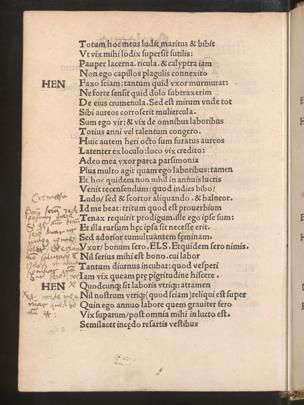 Totum hoc meus ludit maritus & bibit
Vt vix mihi lodix superfit sutilis:
Pauper lacerna. ricula. & calyptra iam
Non ego capillos plagulis connexito
HEN Faxo sciam: tantum quid vxor murmurat:
Ne forte sensit quid dolo subtraxerim
De eius crumenula. Sed est mirum vnde tot
Sibi aureos corroserit muliercula.
Sum ego vir: & vix de omnibus laboribus
Totius anni vel talentum congero.
Huic autem heri octo sum furatus aureos
Latenter ex loculo: loco vix credito:
Adeo mea vxor parca parsimonia
Plus multo agit quam ego laboribus: tamen
Ex hoc quidem non nihil in annuis lucris
Venit recensendum: quod indies bibo:
Ludo/ sed & scortor aliquando. & balneor.
Id me beat: tritum quod est prouerbium
Tenax requirit prodigum. ille ego ipse sum:
Et illa rursum hęc ipsa sit necesse erit.
Sed adorsor tumultuantem feminam.
Vxor/ bonum sero. ELS. Et quidem sero nimis.
Nil serius mihi est bono. cui labor
Tantum diurnus incubat: quod vesperi
Iam vix queam pre pigritudine hiscere.
HEN Quodcunq; sit laboris vtriq; attamen
Nil nostrum vtriq; (quod sciam) reliqui est super
Quin ego annuo labore quem grauiter fero
Vix suparum/ post omnia mihi in lucro est.
Semilacer incędo resartis vestibus